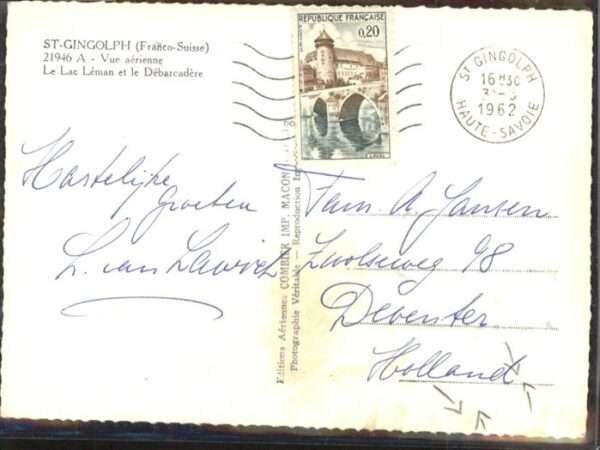 ST-GINGOLPH (Franco-Suisse)
21946 A - Vue aérienne
Le Lac Léman et le Débarcadère
REPUBLIQUE FRANÇAISE
0,20
LAVAL
ST GINGOLPH
16 H30
1962
HAUTE-SAVOIE
Hartelijke
Groeten
L. van
Editions Aériennes COMBIER IMP. MACON
Photographie Véritable — Reproduction
Fam. A. Jansen
Zwolseweg 98
Deventer
Holland